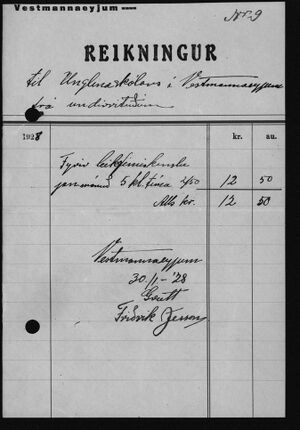 Vestmannaeyjum
Nr. 9
REIKNINGUR
til Unglingaskólans í Vestmannaeyjum
frá undirrituðum
1928 kr. au.
Fyrir leikfimiskenslu
janmánuð 5 kl. tíma 2/50 12 50
Alls kr. 12 50
Vestmannaeyjum
30/1 - '28
Greitt
Friðrik Jesson